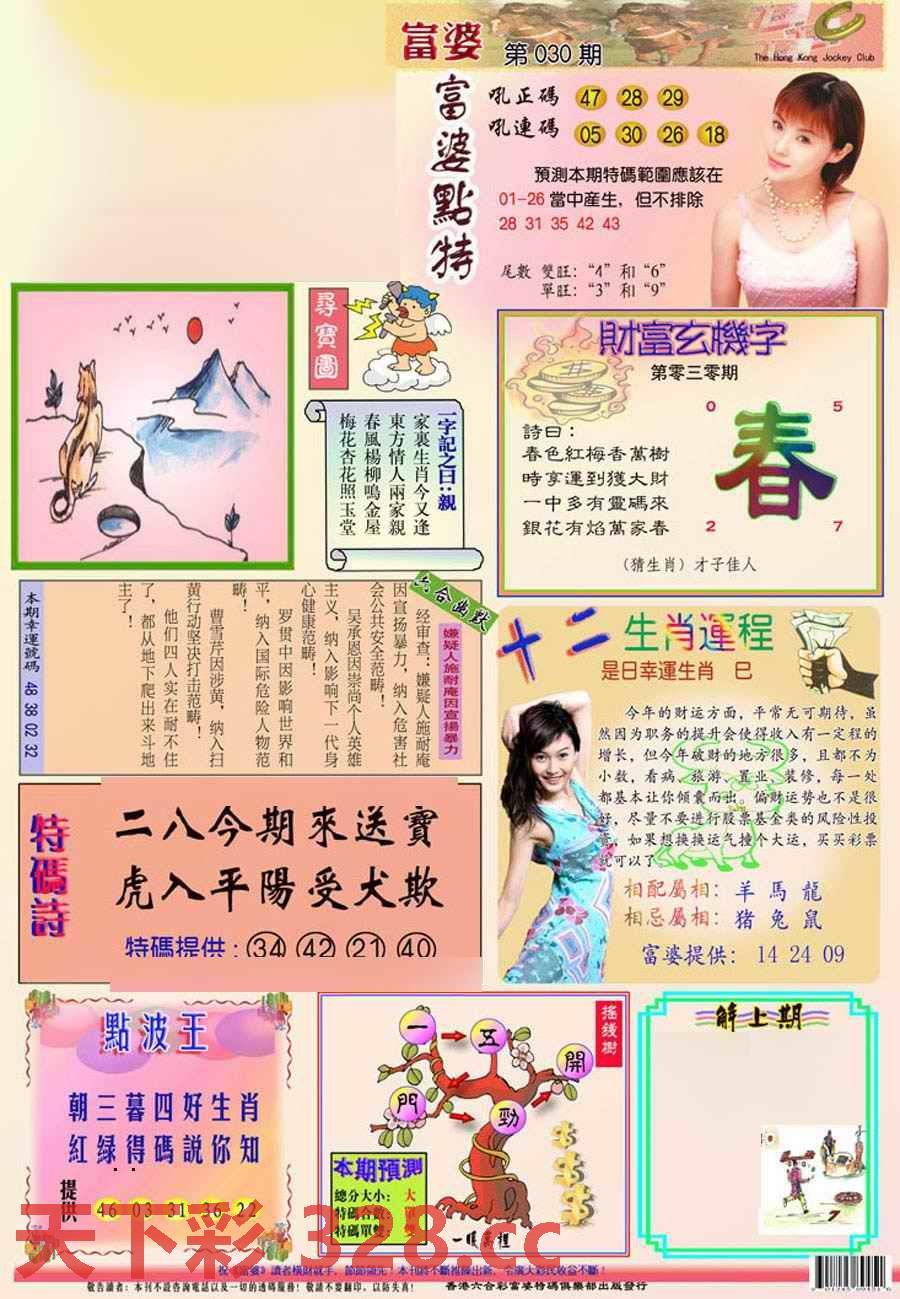 富婆
第030期
The Hong Kong Jockey Club
富婆點特
吼正碼 47 28 29
吼連碼 05 30 26 18
預測本期特碼範圍應該在
01-26當中産生，但不排除
28 31 35 42 43
尾數 雙旺：“4”和“6”
單旺：“3”和“9”
尋寶圖
一字記之曰：親
家裏生肖今又逢
東方情人兩家親
春風楊柳鳴金屋
梅花杏花照玉堂
財富玄機字
第零三零期
詩曰：
春色紅梅香萬樹
時享運到獲大財
一中多有靈碼來
銀花有焰萬家春
0 5
春
2 7
（猜生肖）才子佳人
六合幽默
嫌疑人施耐庵因宣揚暴力
经审查：嫌疑人施耐庵
因宣扬暴力，纳入危害社
会公共安全范畴！
吴承恩因崇尚个人英雄
主义，纳入影响下一代身
心健康范畴！
罗贯中因影响世界和
平，纳入国际危险人物范
畴！
曹雪芹因涉黄，纳入扫
黄行动坚决打击范畴！
他们四人实在耐不住
了，都从地下爬出来斗地
主了！
本期幸運號碼 48 38 02 32
十二生肖運程
是日幸運生肖 巳
今年的财运方面，平常无可期待，虽
然因为职务的提升会使得收入有一定程的
增长，但今年破财的地方很多，且都不为
小数，看病、旅游、置业、装修，每一处
都基本让你倾囊而出。偏财运势也不是很
好，尽量不要进行股票基金类的风险性投
资，如果想换换运气撞个大运，买买彩票
就可以了
相配屬相：羊 馬 龍
相忌屬相：猪 兔 鼠
富婆提供：14 24 09
特碼詩
二八今期來送寶
虎入平陽受犬欺
特碼提供：34 42 21 40
點波王
朝三暮四好生肖
紅緑得碼説你知
提供 46 03 31 36 22
搖錢樹
一 五
開
門 勁
本期預測
總分大小：大
特碼合數：單
特碼單雙：雙
一帳萬裡
解上期
天下彩 328.cc
祝《富婆》讀者橫財就手，節節領先！本刊將不斷推陳出新，令廣大彩民收益不斷！
敬告讀者：本刊不設咨詢電話以及一切的透碼服務！敬請不要翻印，以防失真！
香港六合彩富婆特碼俱樂部出版發行